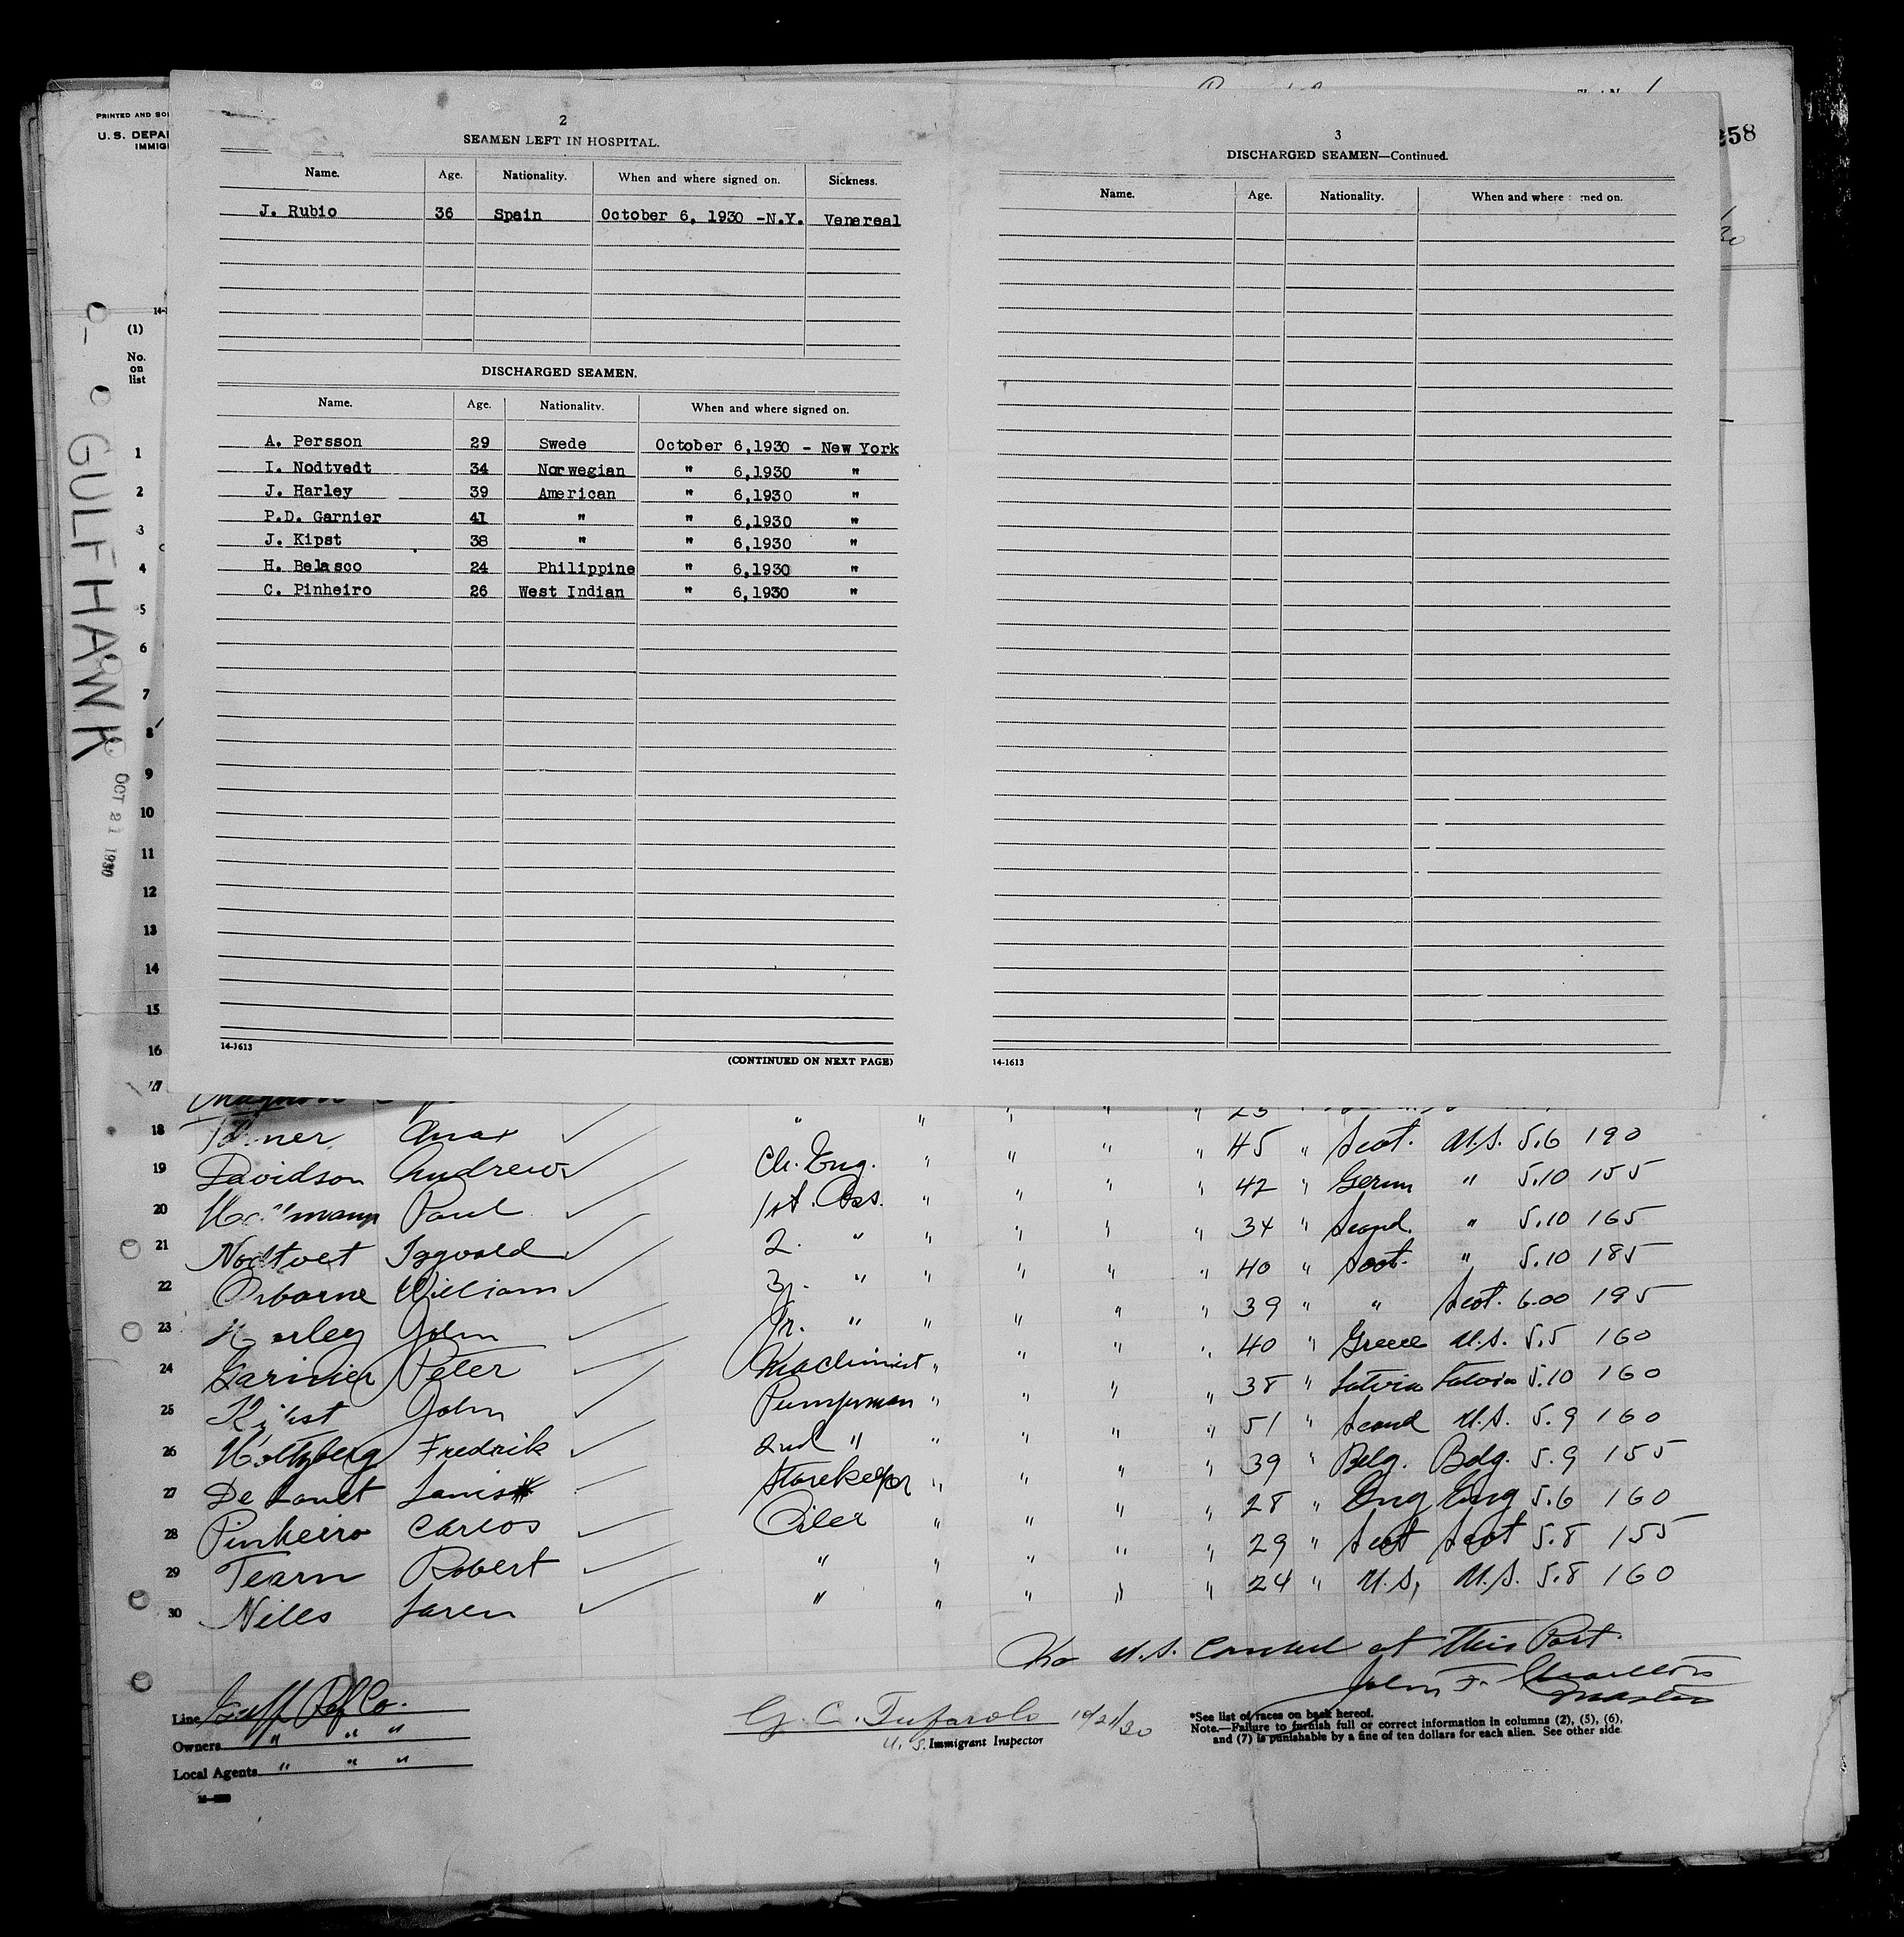 PRINTED AND SO
U. S. DEPA
IMMIG
258
2
SEAMEN LEFT IN HOSPITAL.
Name. Age. Nationality. When and where signed on. Sickness.
J. Rubio 36 Spain October 6, 1930 -N.Y. Venereal
DISCHARGED SEAMEN.
Name. Age. Nationality. When and where signed on.
A. Persson 29 Swede October 6,1930 - New York
I. Nodtvedt 34 Norwegian " 6,1930 "
J. Harley 39 American " 6,1930 "
P.D. Garnier 41 " " 6,1930 "
J. Kipst 38 " " 6,1930 "
H. Belasco 24 Philippine " 6,1930 "
C. Pinheiro 26 West Indian " 6,1930 "
14-1613
(CONTINUED ON NEXT PAGE)
3
DISCHARGED SEAMEN—Continued.
Name. Age. Nationality. When and where med on.
14-1613
(1)
No.
on
list
GULFHAWK
OCT 21 1930
1
2
3
4
5
6
7
8
9
10
11
12
13
14
15
16
17
18 " " " " " 23 "
19 Davidson Andrew Ch. Eng. " " " " 45 " Scot. U.S. 5.6 190
20 Paul 1st. Ass. " " " " 42 " Germ " 5.10 155
21 Nodtvet 2. " " " " " 34 " Scand. " 5.10 165
22 Osborne William 3. " " " " " 40 " Scot. " 5.10 185
23 Harley John Jr. " " " " " 39 " " Scot. 6.00 195
24 Garnier Peter Machinist " " " " 40 " Greece U.S. 5.5 160
25 Kipst John Pumpman " " " " 38 " Latvia Latvia 5.10 160
26 Holtzberg Fredrik 2nd " " " " " 51 " Scand U.S. 5.9 160
27 Louis Storekeeper " " " " 39 " Belg. Belg. 5.9 155
28 Pinheiro Carlos Oiler " " " " 28 " Eng Eng 5.6 160
29 Tearn Robert " " " " " 29 " Scot Scot 5.8 155
30 Niles Loren " " " " " 24 " U.S. U.S. 5.8 160
No U.S. Consul at this Port.
John F. Charlton
Master
Line Gulf Ref Co.
Owners " " "
Local Agents " " "
G. C. Tufarolo 10/21/30
U. S. Immigrant Inspector
*See list of races on back hereof.
Note.—Failure to furnish full or correct information in columns (2), (5), (6),
and (7) is punishable by a fine of ten dollars for each alien. See other side